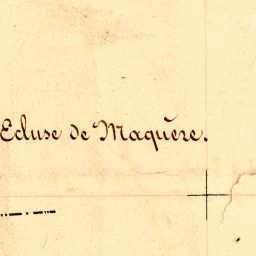 Ecluse de Maquère.